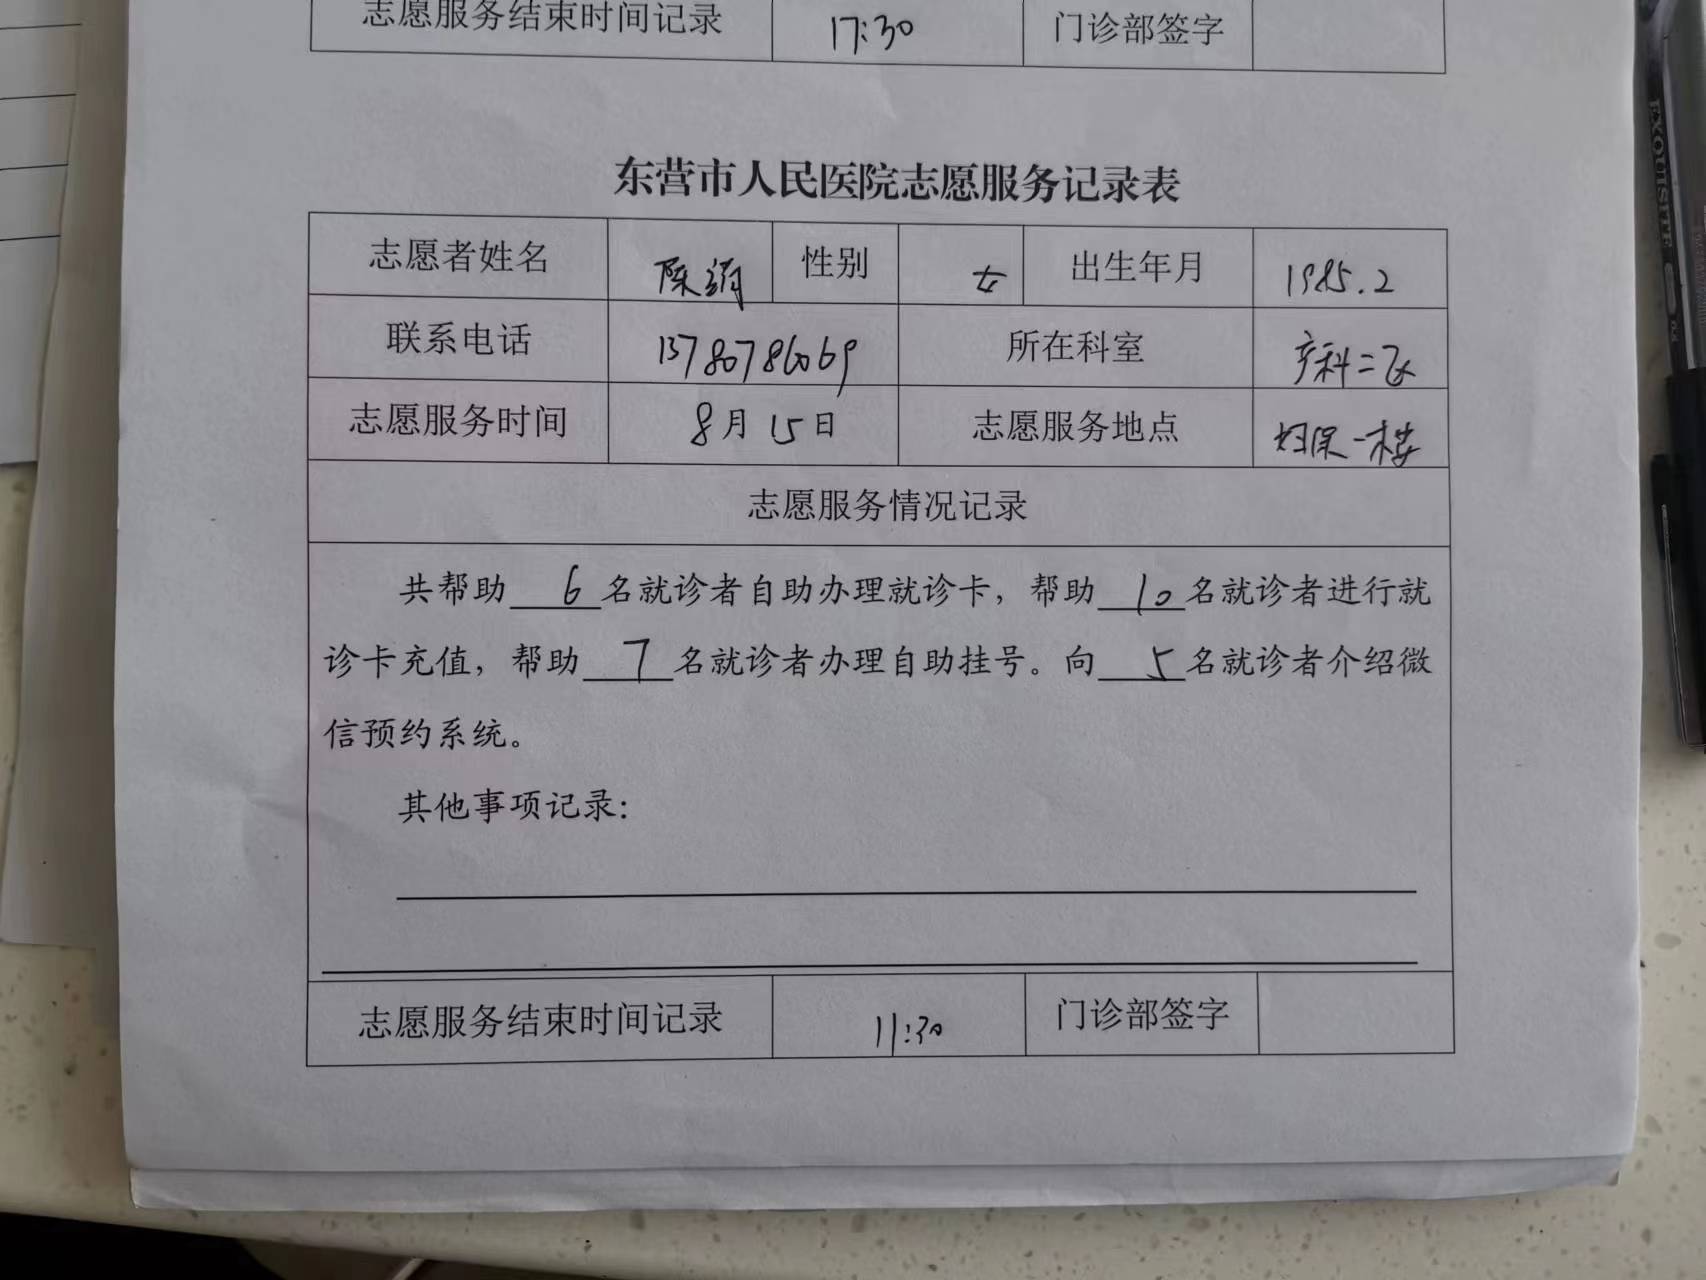 志愿服务结束时间记录 17:30 门诊部签字
东营市人民医院志愿服务记录表
志愿者姓名 陈娟 性别 女 出生年月 1985.2
联系电话 13780786069 所在科室 产科二区
志愿服务时间 8月15日 志愿服务地点 妇保一楼
志愿服务情况记录
共帮助 6 名就诊者自助办理就诊卡，帮助 10 名就诊者进行就
诊卡充值，帮助 7 名就诊者办理自助挂号。向 5 名就诊者介绍微
信预约系统。
其他事项记录：
志愿服务结束时间记录 11:30 门诊部签字